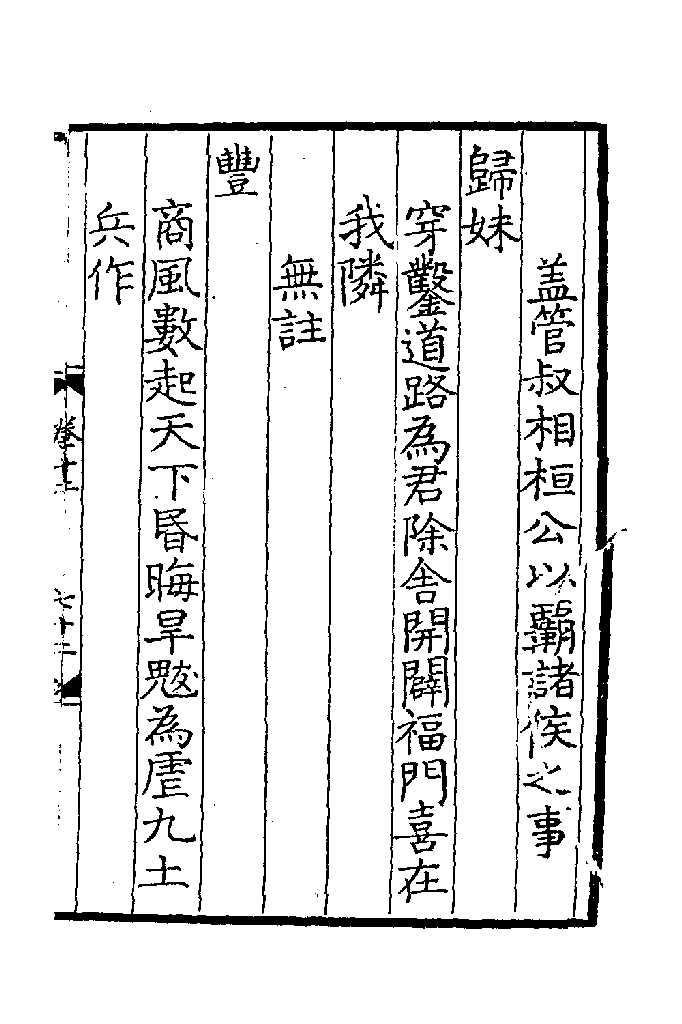 盖管叔相桓公以覇諸侯之事
歸妹
穿鑿道路為君除舍開闢福門喜在
我隣
無註
豐
商風數起天下昬晦旱魃為虐九土
兵作
七十二